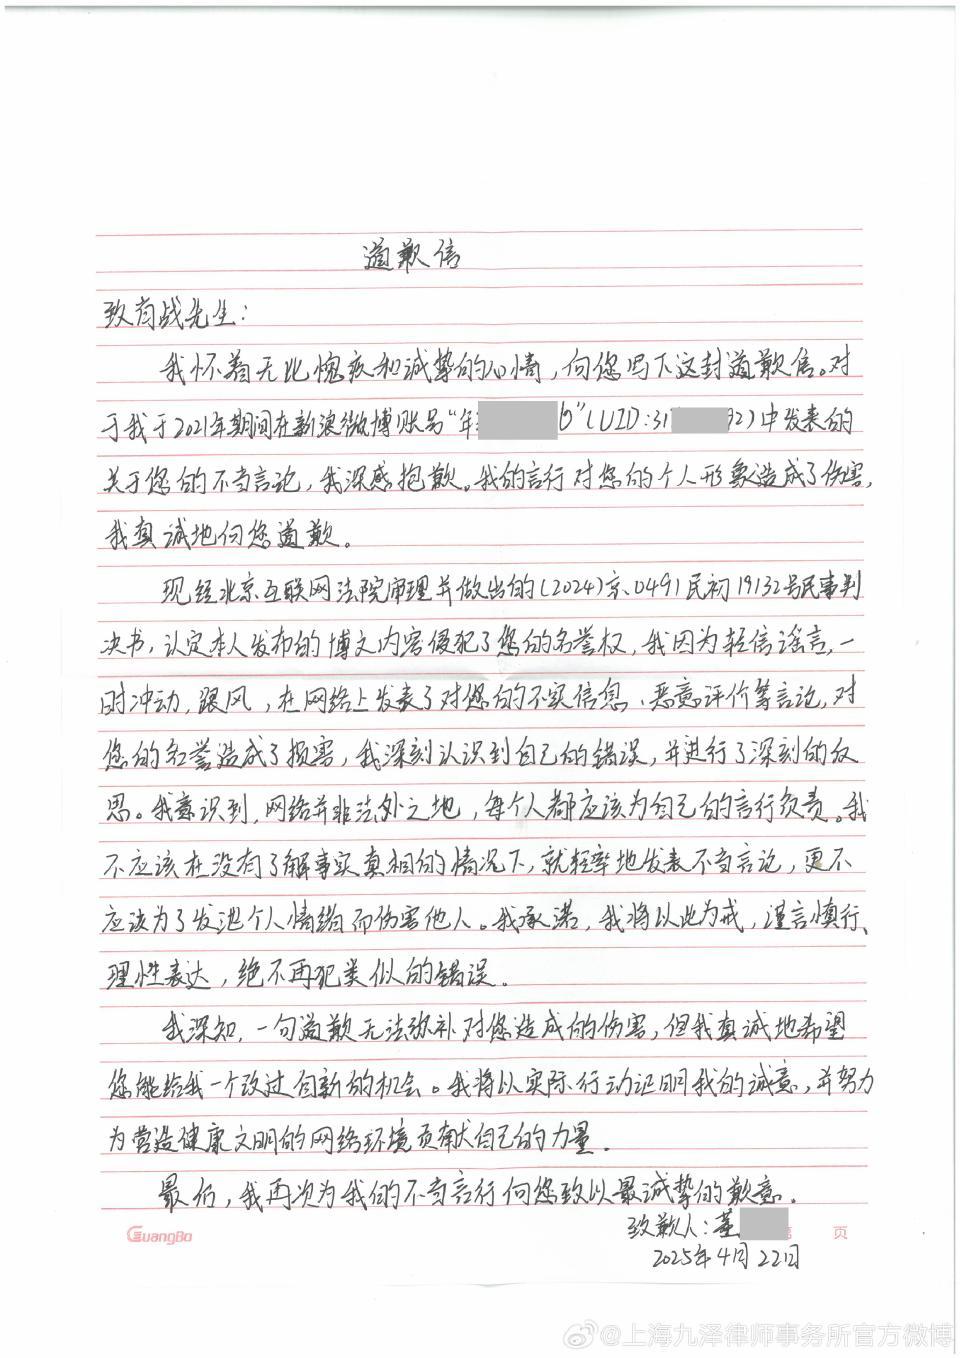 道歉信
致肖战先生：
我怀着无比愧疚和诚挚的心情，向您写下这封道歉信。对
于我于2021年期间在新浪微博账号“年 b”（UID：31 92）中发表的
关于您的不当言论，我深感抱歉。我的言行对您的个人形象造成了伤害，
我真诚地向您道歉。
现经北京互联网法院审理并做出的（2024）京0491民初19132号民事判
决书，认定本人发布的博文内容侵犯了您的名誉权，我因为轻信谣言，一
时冲动，跟风，在网络上发表了对您的不实信息、恶意评价等言论，对
您的名誉造成了损害，我深刻认识到自己的错误，并进行了深刻的反
思。我意识到，网络并非法外之地，每个人都应该为自己的言行负责。我
不应该在没有了解事实真相的情况下，就轻率地发表不当言论，更不
应该为了发泄个人情绪而伤害他人。我承诺，我将以此为戒，谨言慎行、
理性表达，绝不再犯类似的错误。
我深知，一句道歉无法弥补对您造成的伤害，但我真诚地希望
您能给我一个改过自新的机会。我将以实际行动证明我的诚意，并努力
为营造健康文明的网络环境贡献自己的力量。
最后，我再次为我的不当言行向您致以最诚挚的歉意。
致歉人：董
GuangBo 页
2025年4月22日
@上海九泽律师事务所官方微博